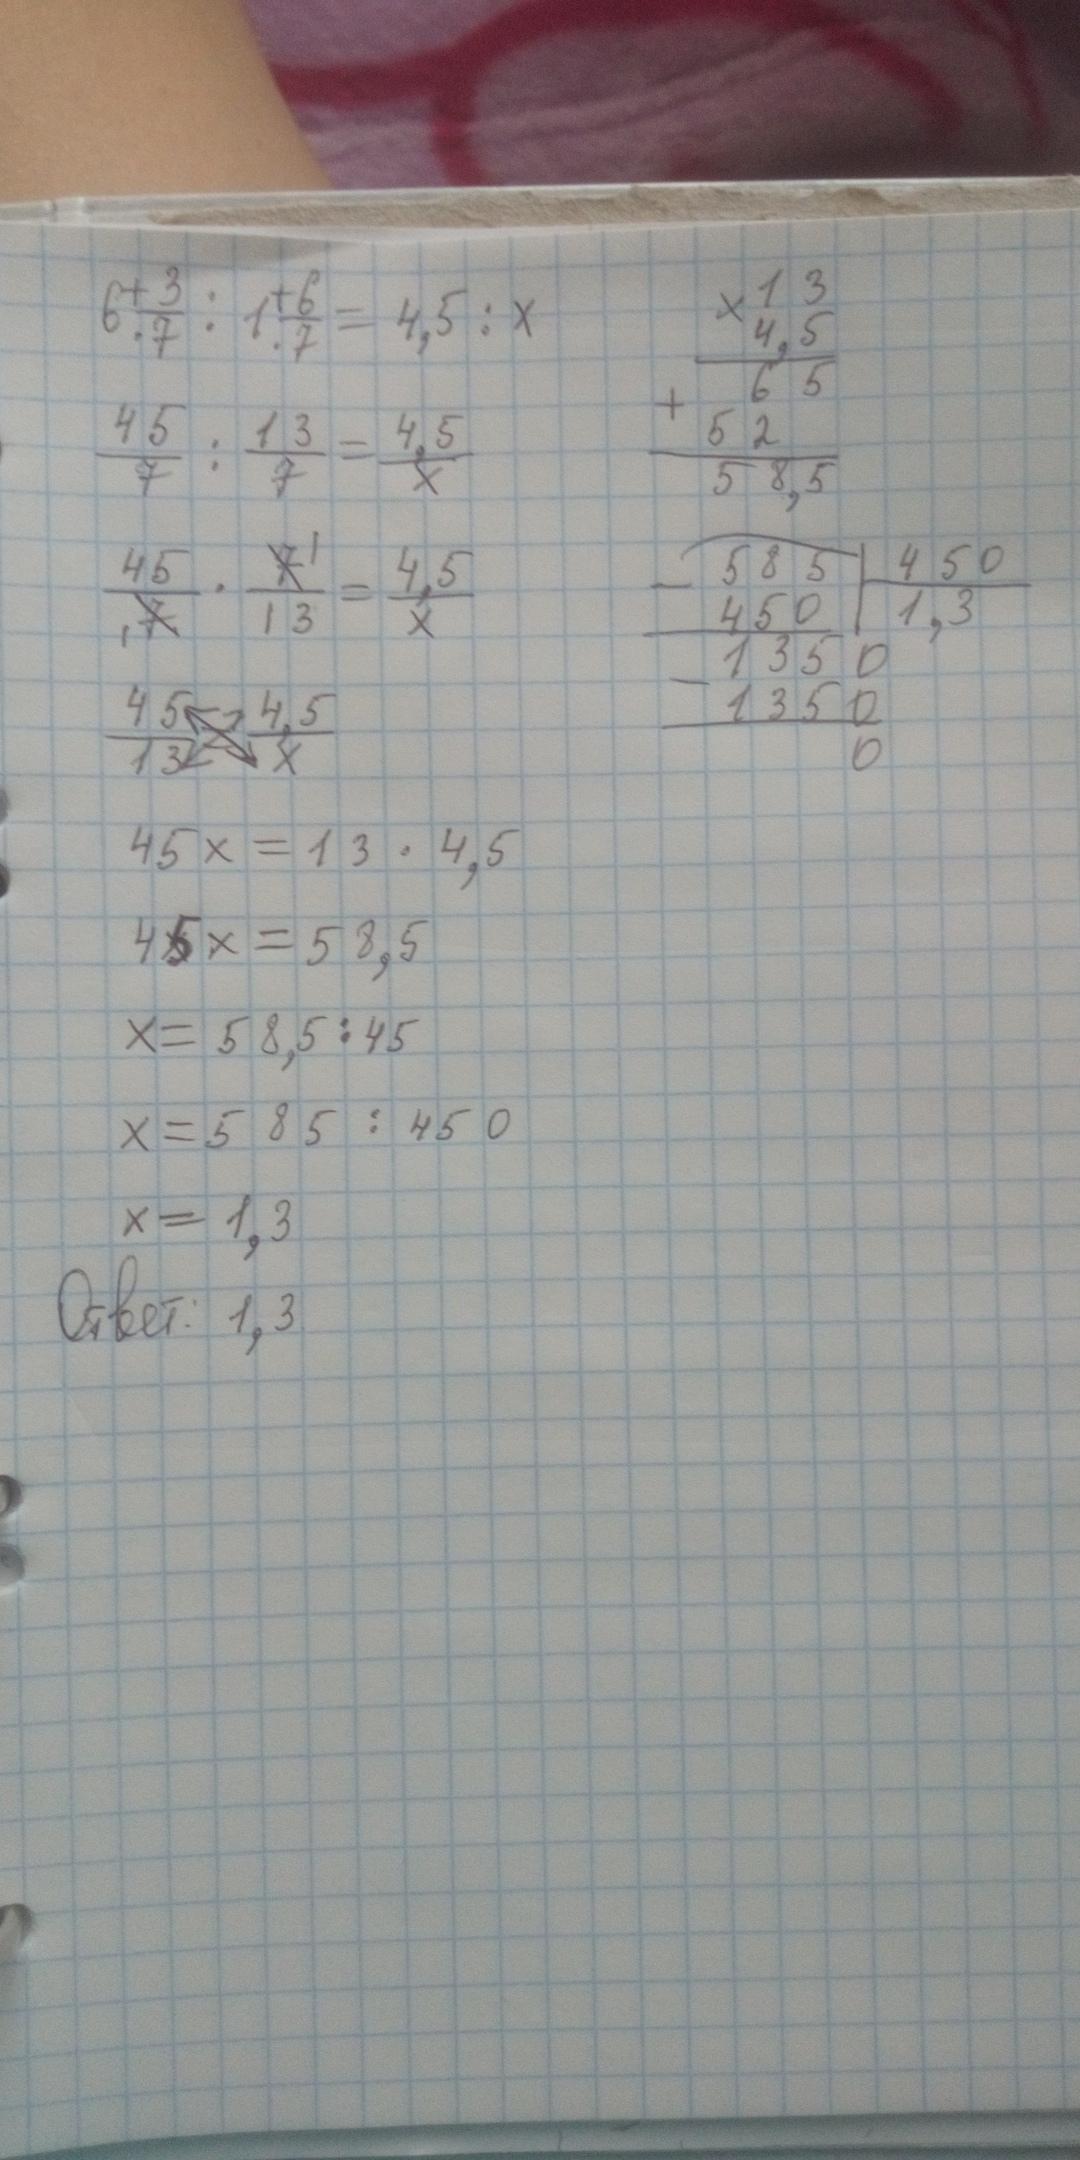 6 +3/·7 : 1 +6/·7 = 4,5 : x
45/7 : 13/7 = 4,5/x
45/7 · 7/13 = 4,5/x
45/13 4,5/x
45x = 13 · 4,5
45x = 58,5
x = 58,5 : 45
x = 585 : 450
x = 1,3
Ответ: 1,3
x 13
4,5
65
+
52
58,5
- 585 | 450
450 | 1,3
1350
- 1350
0